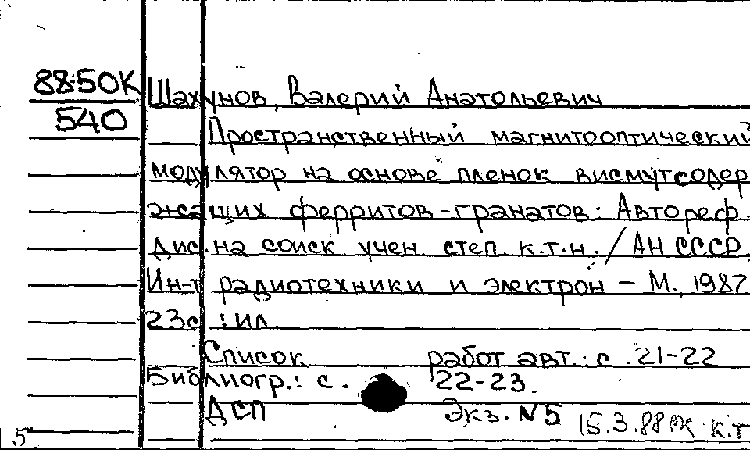 88-50К
540
Шахунов, Валерий Анатольевич
Пространственный магнитооптический
модулятор на основе пленок висмутсодер
жащих ферритов-гранатов: Автореф
дис. на соиск учен степ к.т.н. / АН СССР,
Ин-т радиотехники и электрон - М., 1987
23с : ил
Список работ авт.: с. 21-22
Библиогр.: с. 22-23.
ДСП Экз. N5 15.3.88 к.т